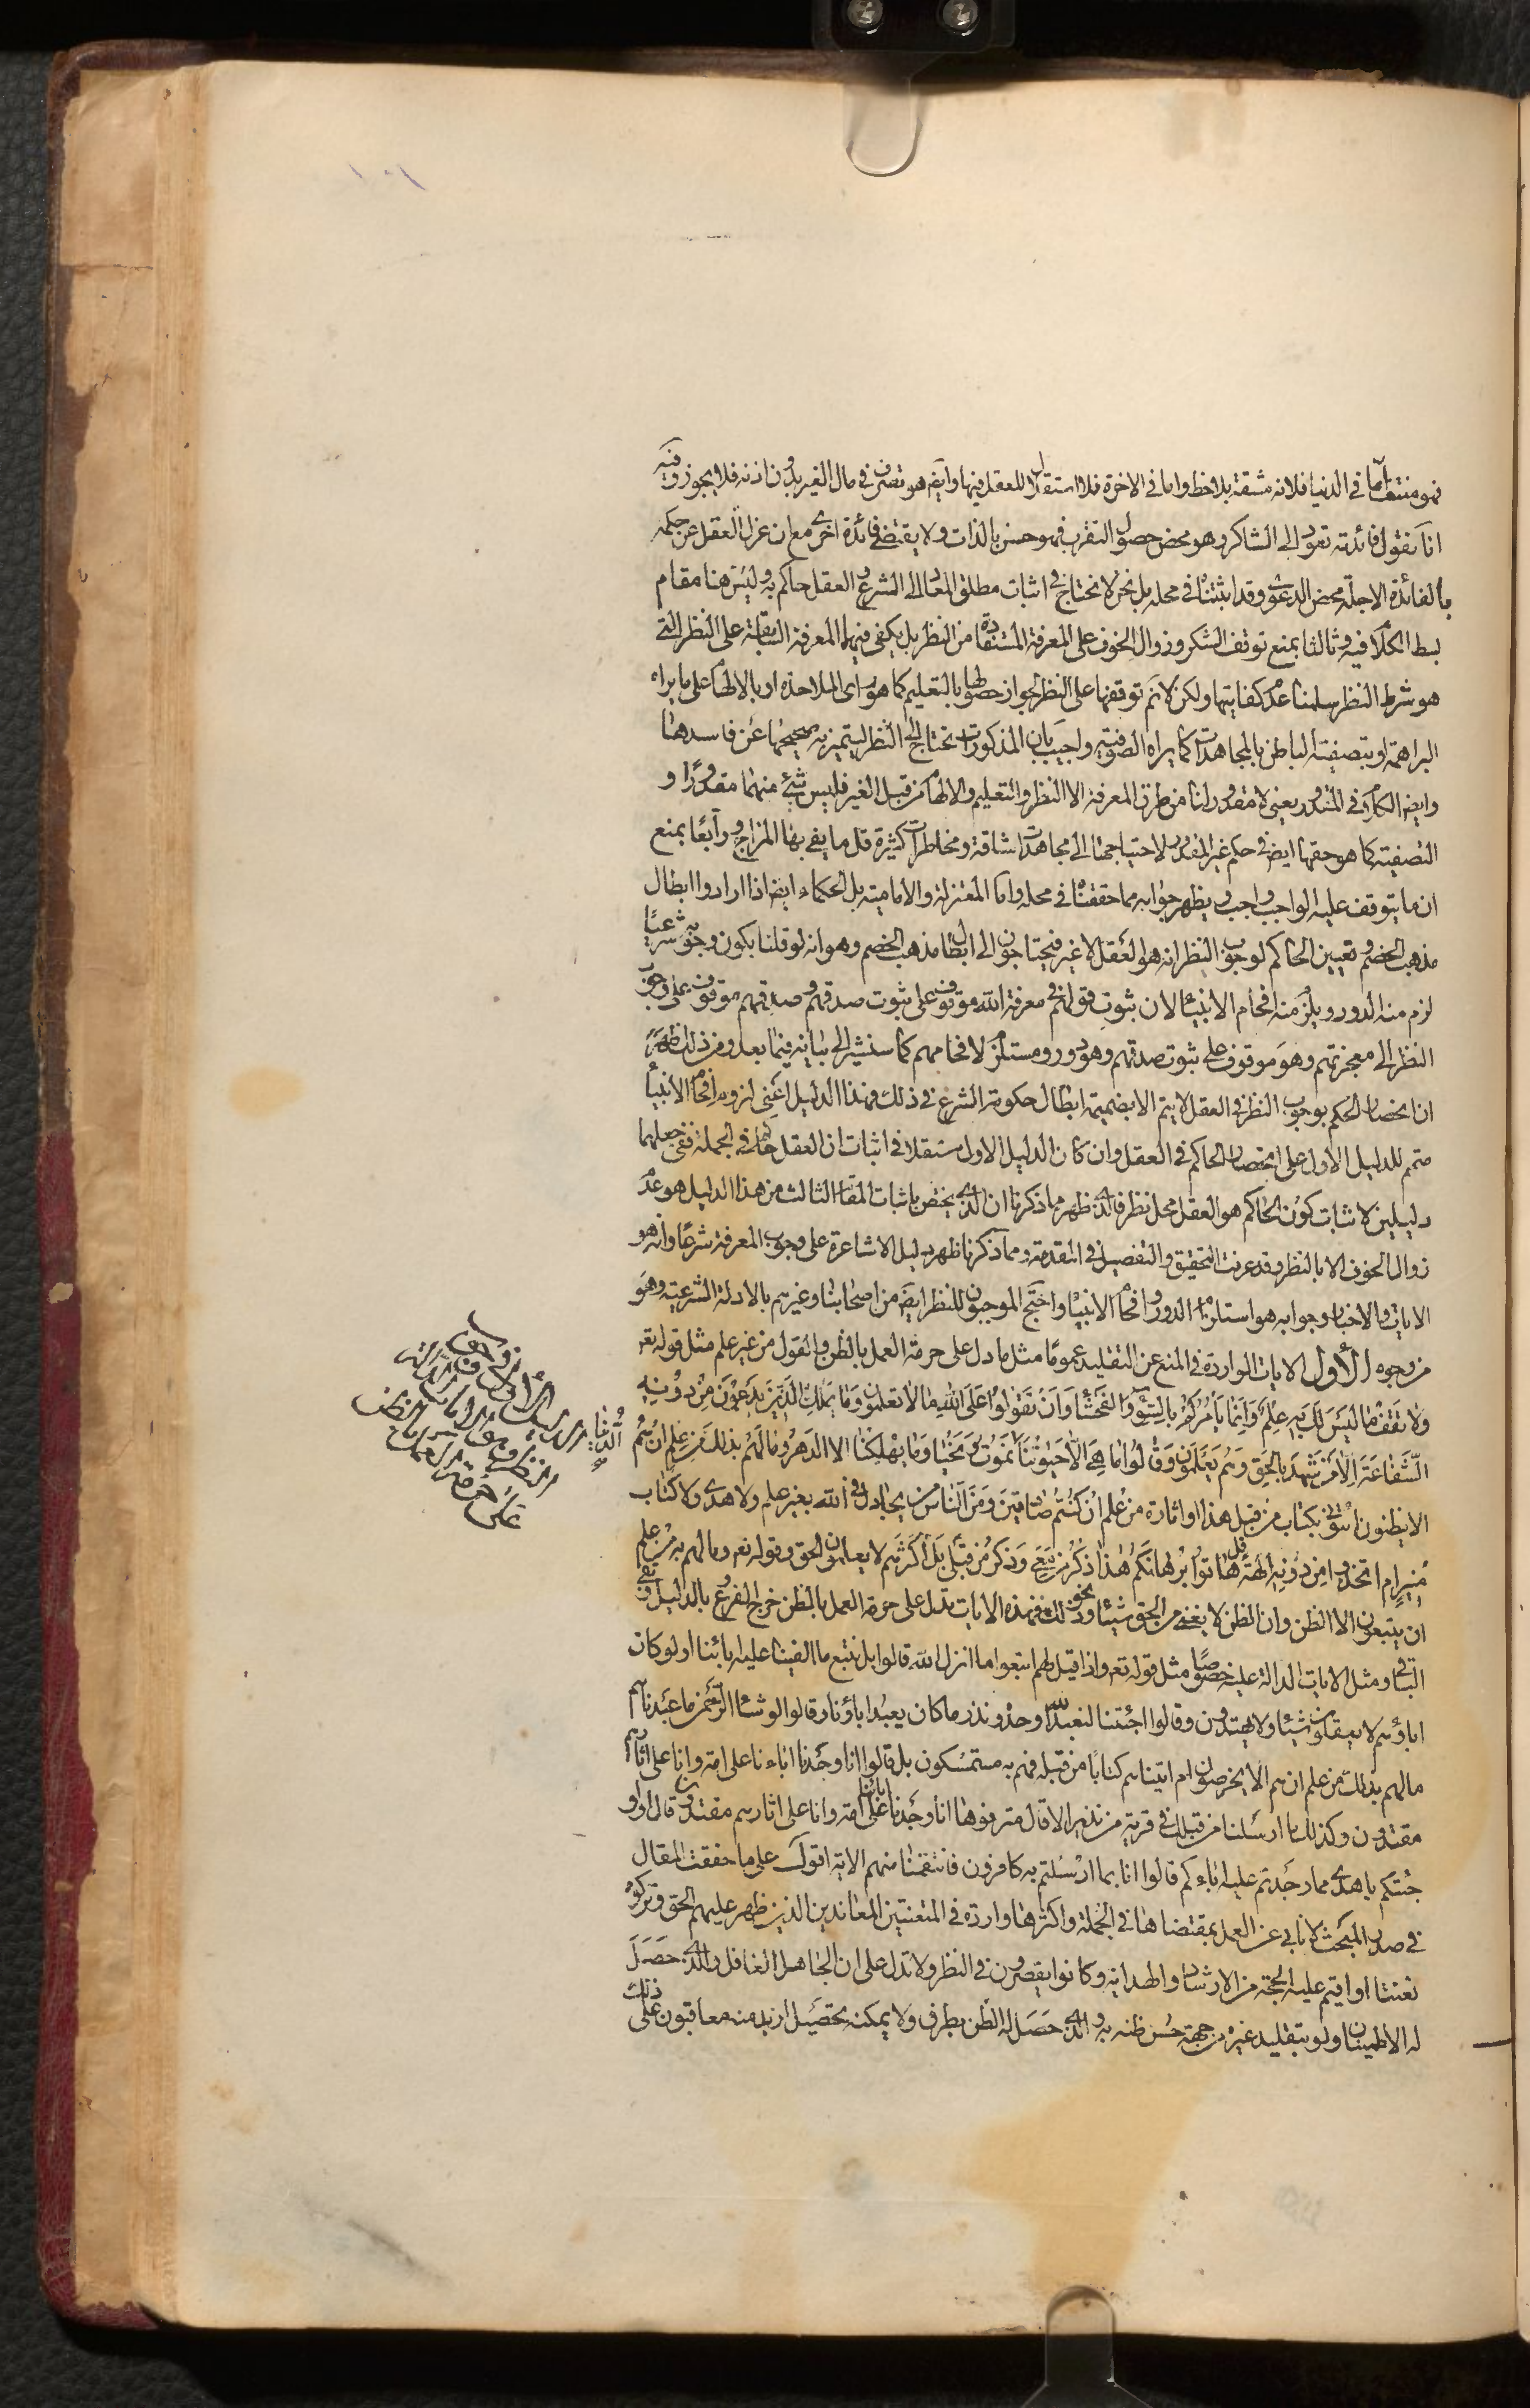 فهو منتف اما في الدنيا فلانه مشقة بلا حظ واما في الاخرة فلا استقلال للعقل فيها وايضا هو تصرف في مال الغير بدون اذنه فلا يجوز وفيه
انا نقول فائدته تعود الى الشاكر وهو محض حصول التقرب فهو حسن بالذات ولا يقتضي فائدة اخرى مع ان عزل العقل عن حكمه
بالفائدة الاجلة محض الدعوى وقد اثبتناه في محله بل نحن لا نحتاج في اثبات مطلق المعاد الى الشرع والعقل حاكم به وليس هنا مقام
بسط الكلام فيه وثالثا بمنع توقف الشكر وزوال الخوف على المعرفة المستفادة من النظر بل يكفي فيهما المعرفة السابقة على النظر التي
هو شرط النظر سلمنا عدم كفايتها ولكن لا نم توقفها على النظر لجواز حصولها بالتعليم كما هو راى الملاحدة او بالالهام على ما يراه
البراهمة او بتصفية الباطن بالمجاهدات كما يراه الصوفية واجيب بان المذكورات تحتاج الى النظر ليتميز به صحيحها عن فاسدها
وايضا الكلام في المقدور يعني لا مقدور لنا من طرق المعرفة الا النظر والتعليم والالهام من قبل الغير فليس شئ منهما مقدورا و
التصفية كما هو حقها ايض في حكم غير المقدور لاحتياجها الى مجاهدات شاقة ومخاطرات كثيرة قل ما يفي بها المزاج ورابعا بمنع
ان ما يتوقف عليه الواجب واجب ويظهر جوابه مما حققناه في محله واما المعتزلة والامامية بل الحكماء ايض اذا ارادوا ابطال
مذهب الخصم وتعيين الحاكم لوجوب النظر انه هو العقل لا غير فيحتاجون الى ابطال مذهب الخصم وهو انه لو قلنا بكون وجوبه شرعيا
لزم منه الدور ويلزم منه افحام الانبياء لان ثبوت قولهم في معرفة الله موقوف على ثبوت صدقهم وصدقهم موقوف على وجوب
النظر الى معجزتهم وهو موقوف على ثبوت صدقهم وهو دور ومستلزم لافحامهم كما سنشير الى بيانه فيما بعد ومن ذلك ظهر
ان انحصار الحكم بوجوب النظر في العقل لا يتم الا بضميمة ابطال حكومة الشرع في ذلك فهذا الدليل اعني لزوم افحام الانبياء
متمم للدليل الاول على اختصاص الحاكم في العقل وان كان الدليل الاول مستقلا في اثبات ان العقل حاكم في الجملة ففي جعلهما
دليلين لاثبات كون الحاكم هو العقل محل نظر فالذي ظهر مما ذكرنا ان الذي يختص باثبات المقام الثالث من هذا الدليل هو عدم
زوال الخوف الا بالنظر وقد عرفت التحقيق والتفصيل في المقدمة ومما ذكرنا ظهر دليل الاشاعرة على وجوب المعرفة شرعا وانه هو
الايات والاخبار وجوابه هو استلزام الدور وافحام الانبياء واحتج الموجبون للنظر ايض من اصحابنا وغيرهم بالادلة الشرعية وهو
من وجوه الأول الايات الواردة في المنع عن التقليد عموما مثل ما دل على حرمة العمل بالظن والقول من غير علم مثل قوله تعم
ولا تقف ما ليس لك به علم وانما يأمركم بالسوء والفحشاء وان تقولوا على الله ما لا تعلمون وما يملك الذين يدعون من دونه
الشفاعة الا من شهد بالحق وهم يعلمون وقالوا ما هي الا حيوتنا نموت ونحيا وما يهلكنا الا الدهر وما لهم بذلك من علم ان هم
الا يظنون ائتوني بكتاب من قبل هذا او اثارة من علم ان كنتم صادقين ومن الناس من يجادل في الله بغير علم ولا هدى ولا كتاب
منير ام اتخذوا من دونه الهة قل هاتوا برهانكم هذا ذكر من معي وذكر من قبلي بل اكثرهم لا يعلمون الحق وقوله تعم وما لهم به من علم
ان يتبعون الا الظن وان الظن لا يغني من الحق شيئا ونحو ذلك فهذه الايات تدل على حرمة العمل بالظن خرج الفروع بالدليل وبقي
الباقي ومثل الايات الدالة عليه خصوصا مثل قوله تعم واذا قيل لهم اتبعوا ما انزل الله قالوا بل نتبع ما الفينا عليه ابائنا اولو كان
اباؤهم لا يعقلون شيئا ولا يهتدون وقالوا اجئتنا لنعبد الله وحده ونذر ما كان يعبد اباؤنا وقالوا لو شاء الرحمن ما عبدناهم
ما لهم بذلك من علم ان هم الا يخرصون ام اتيناهم كتابا من قبله فهم به مستمسكون بل قالوا انا وجدنا اباءنا على امة وانا على اثارهم
مقتدون وكذلك ما ارسلنا من قبلك في قرية من نذير الا قال مترفوها انا وجدنا ابائنا على امة وانا على اثارهم مقتدون قال اولو
جئتكم باهدى مما وجدتم عليه اباءكم قالوا انا بما ارسلتم به كافرون فانتقمنا منهم الاية اقول على ما حققت المقال
في صدر المبحث لا نابى عن العمل بمقتضاها في الجملة واكثرها واردة في المتعنتين المعاندين الذين ظهر عليهم الحق وتركوه
تعنتا او اقيم عليه الحجة من الارشاد والهداية وكانوا يقصرون في النظر ولا تدل على ان الجاهل الغافل والذي حصل
له الاطمينان ولو بتقليد غيره من جهة حسن ظنه به والذي حصل له الظن بطرف ولا يمكنه تحصيل ازيد منه معاقبون على ذلك
الدليل الأول في وجوب
النظر هو الايات الدالة
على حرمة العمل بالظن